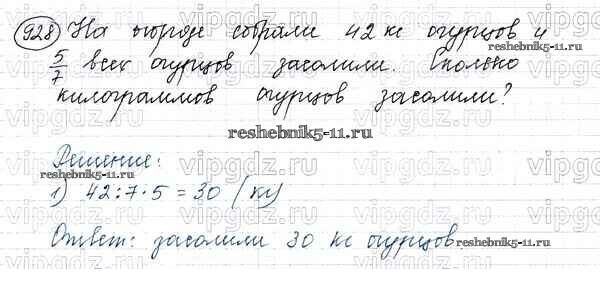 928 На огороде собрали 42 кг огурцов и
5/7 всех огурцов засолили. Сколько
килограммов огурцов засолили?
reshebnik5-11.ru
Решение:
1) 42:7·5 = 30 (кг)
Ответ: засолили 30 кг огурцов
reshebnik5-11.ru